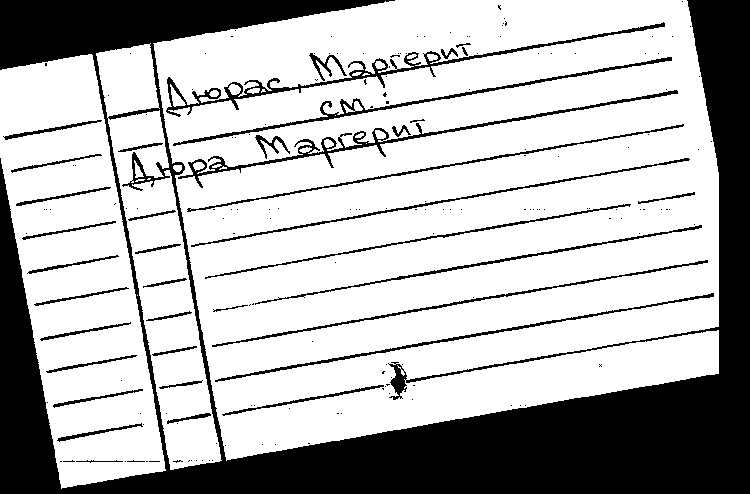 Дюрас, Маргерит
см.:
Дюра, Маргерит